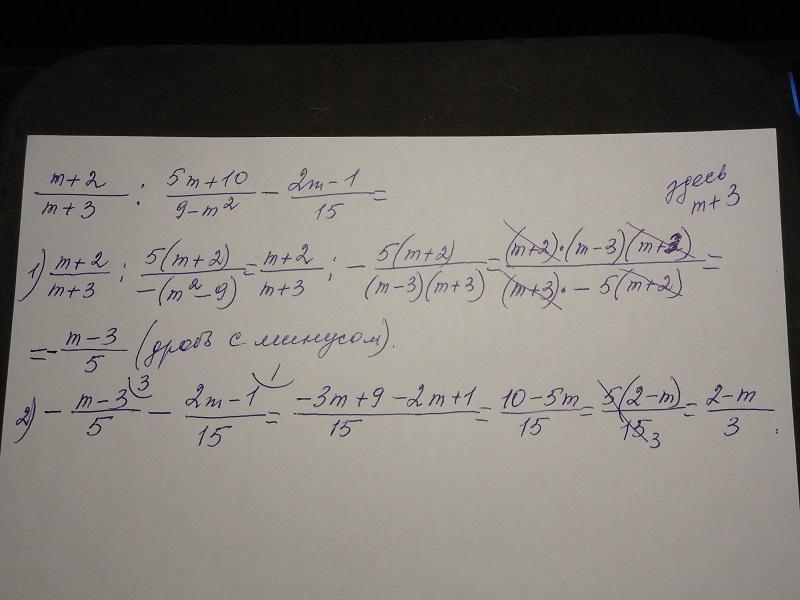 (m+2)/(m+3) : (5m+10)/(9-m²) - (2m-1)/15 =
здесь
m+3
1) (m+2)/(m+3) : 5(m+2)/(-(m²-9)) = (m+2)/(m+3) : - 5(m+2)/((m-3)(m+3)) = (m+2)·(m-3)(m+3)/((m+3)·-5(m+2)) =
= - (m-3)/5 (дробь с минусом).
2) - (m-3)/5 ³ - (2m-1)/15 ¹ = (-3m+9-2m+1)/15 = (10-5m)/15 = 5(2-m)/15 3 = (2-m)/3 .